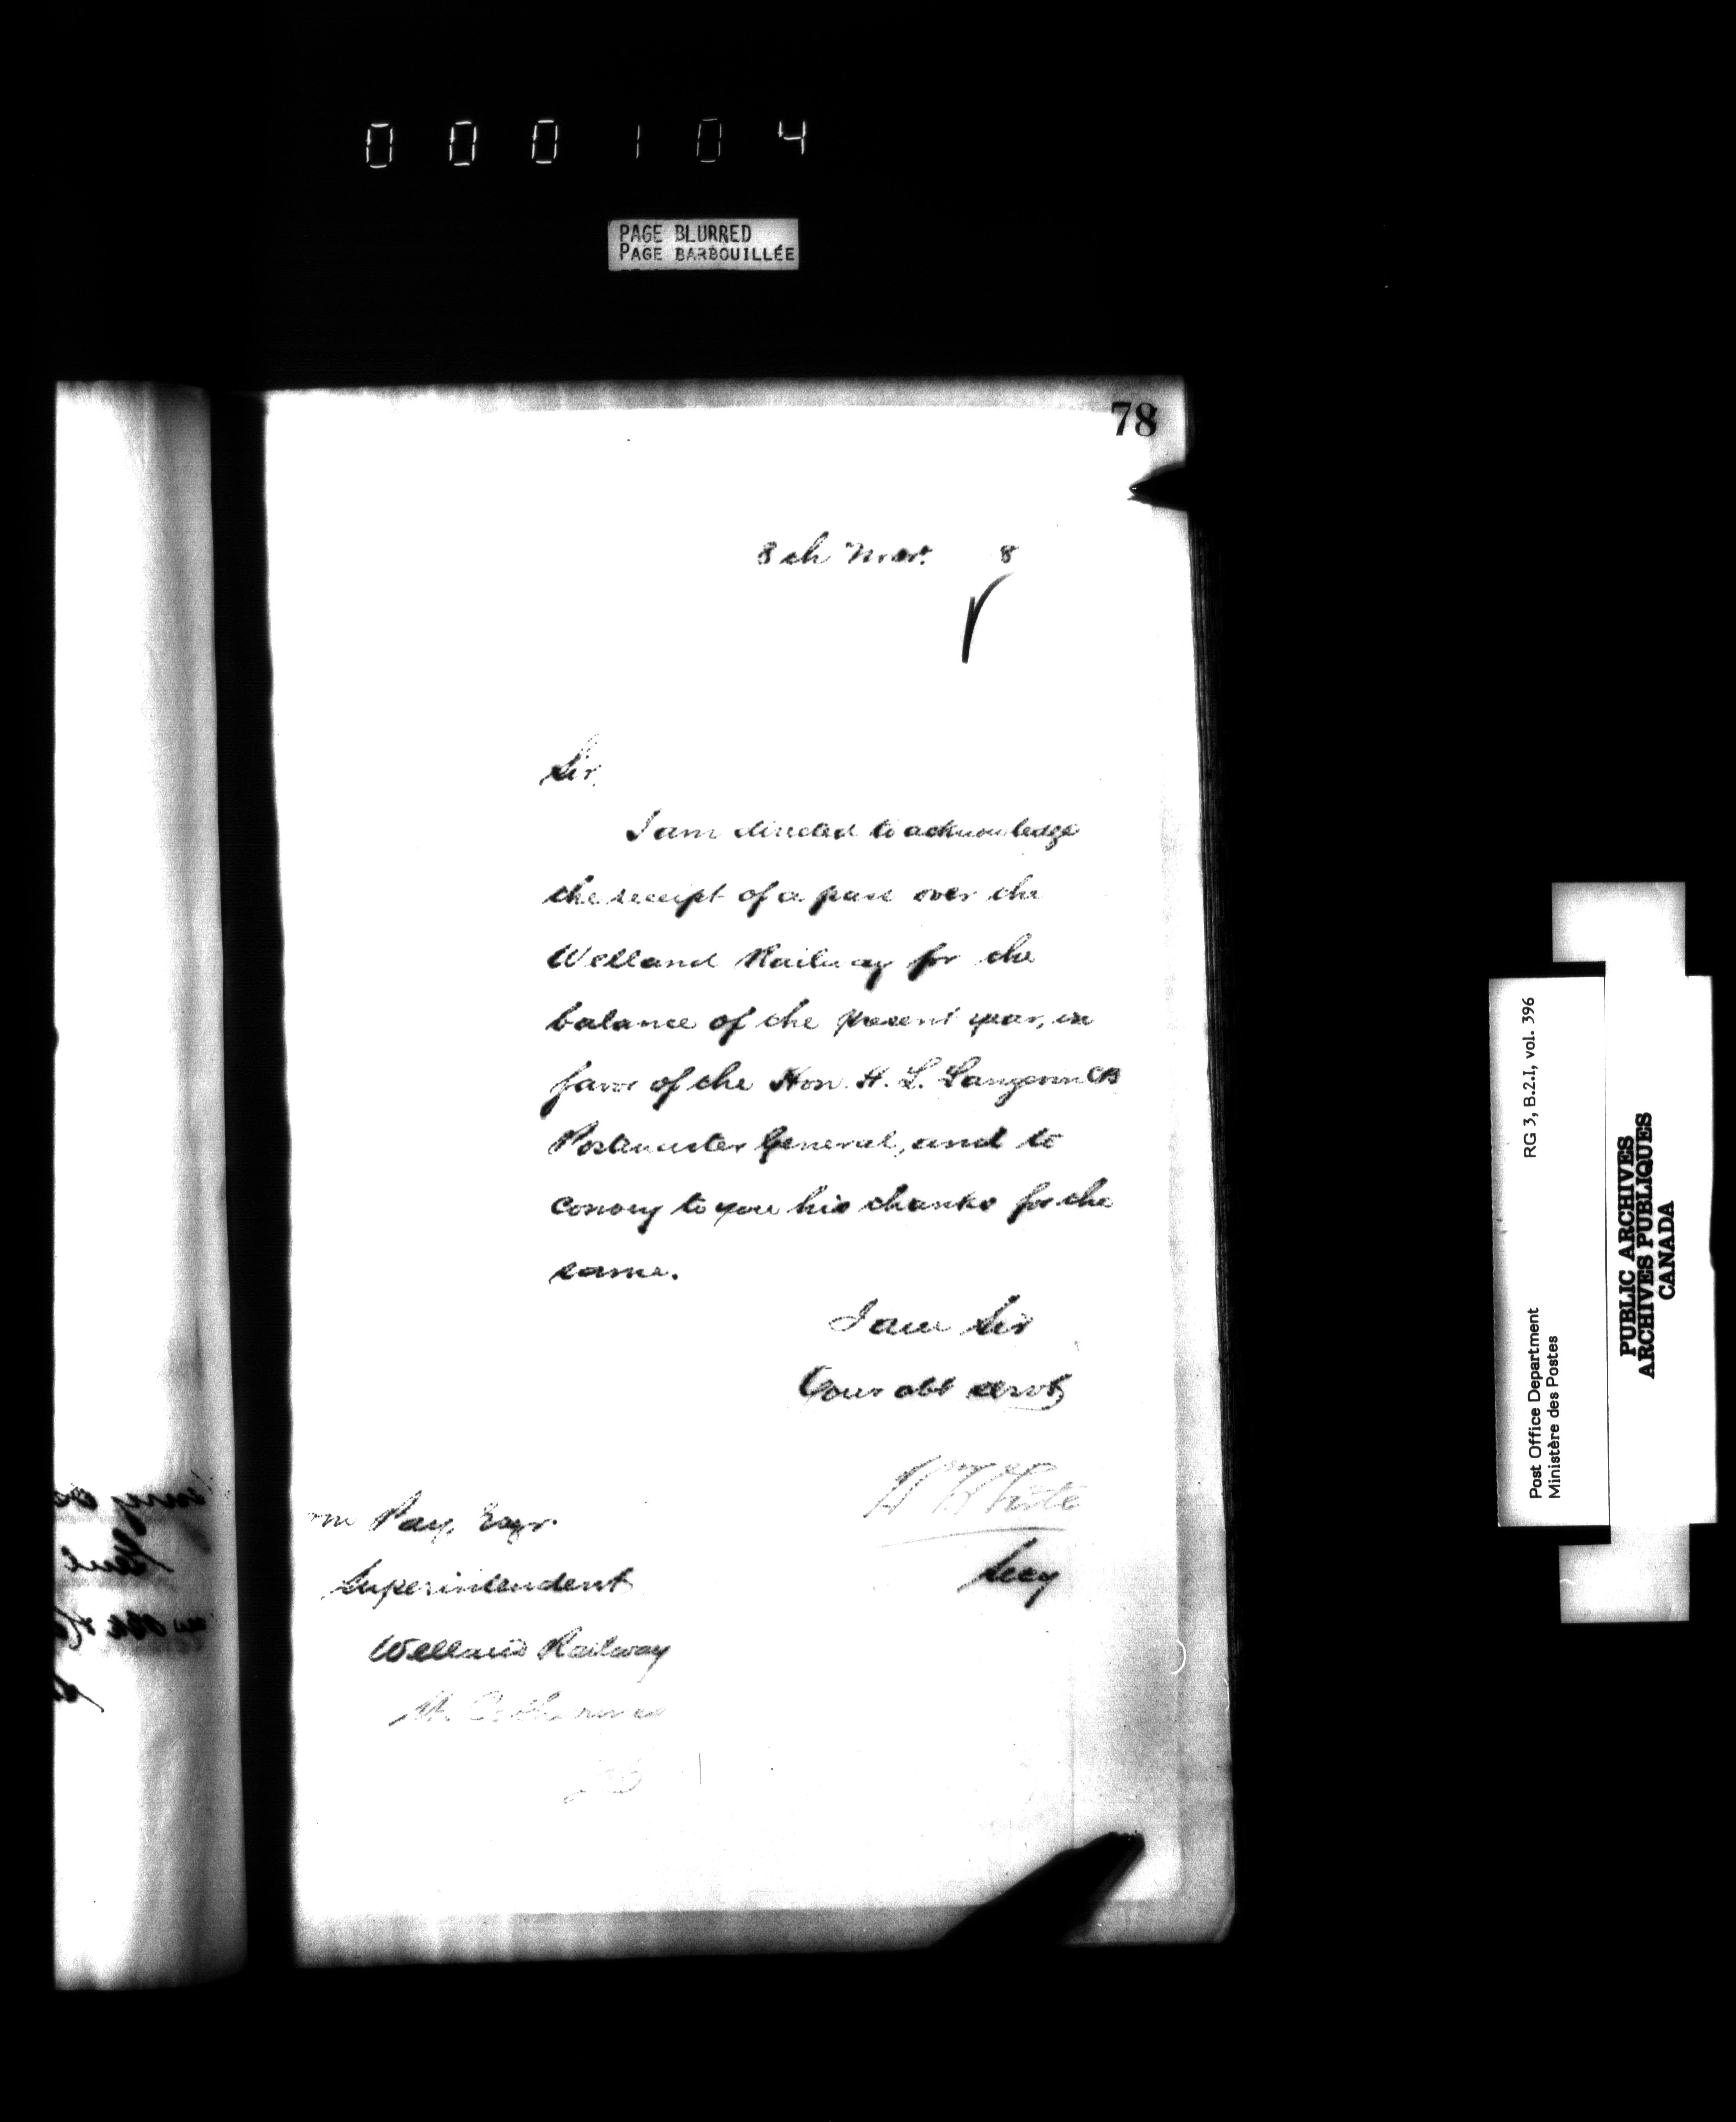 000104
PAGE BLURRED
PAGE BARBOUILLÉE
78
8th Mar. 8
Sir,
I am directed to acknowledge
the receipt of a pass over the
Welland Railway for the
balance of the present year, in
favor of the Hon. H. L. Langevin CB
Postmaster General, and to
convey to you his thanks for the
same.
I am Sir
Your obt servt
W White
Secy
Pay, Esqr.
Superintendent
Welland Railway
St. Catharines
RG 3, B.2.I, vol. 396
Post Office Department
Ministère des Postes
PUBLIC ARCHIVES
ARCHIVES PUBLIQUES
CANADA